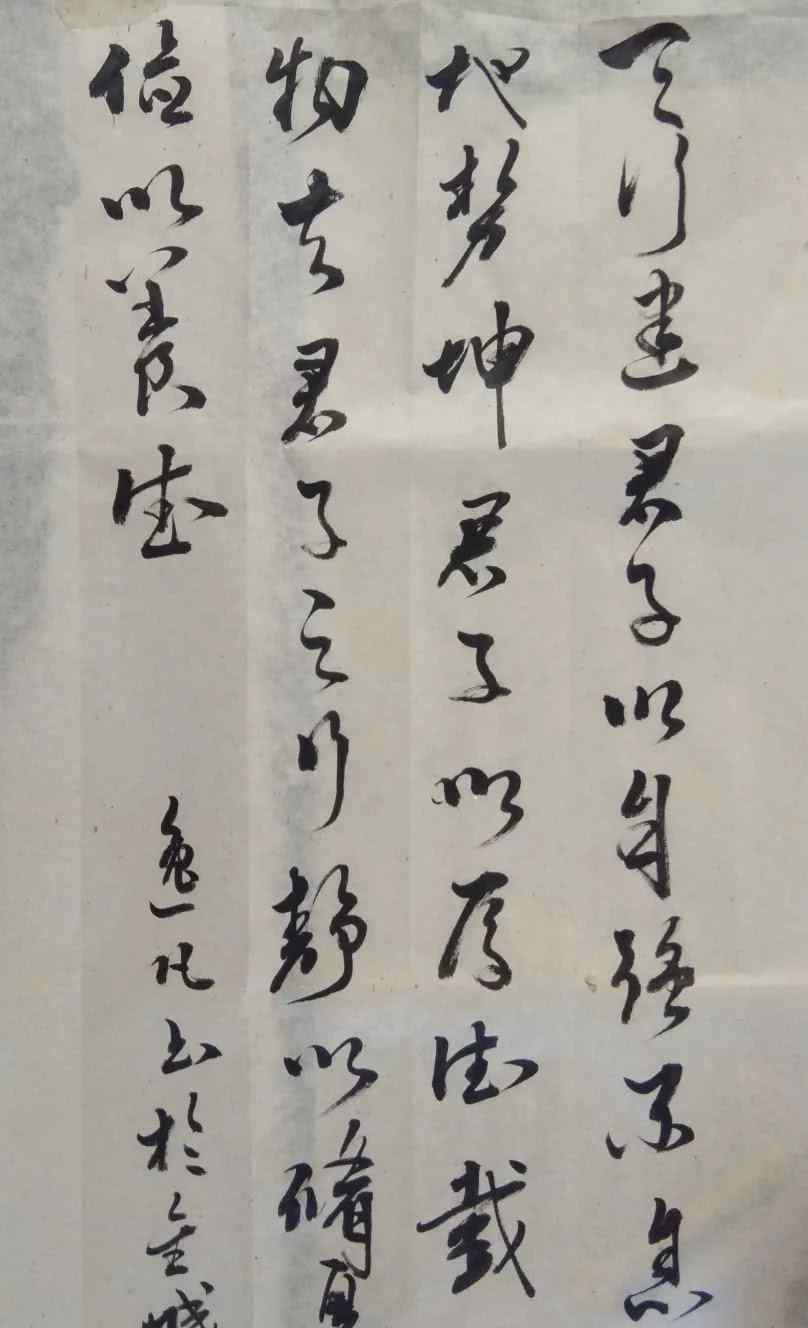 天行建君子以自强不息
地势坤君子以厚德载
物夫君子之行静以脩身
俭以养德
逸凡书於金城